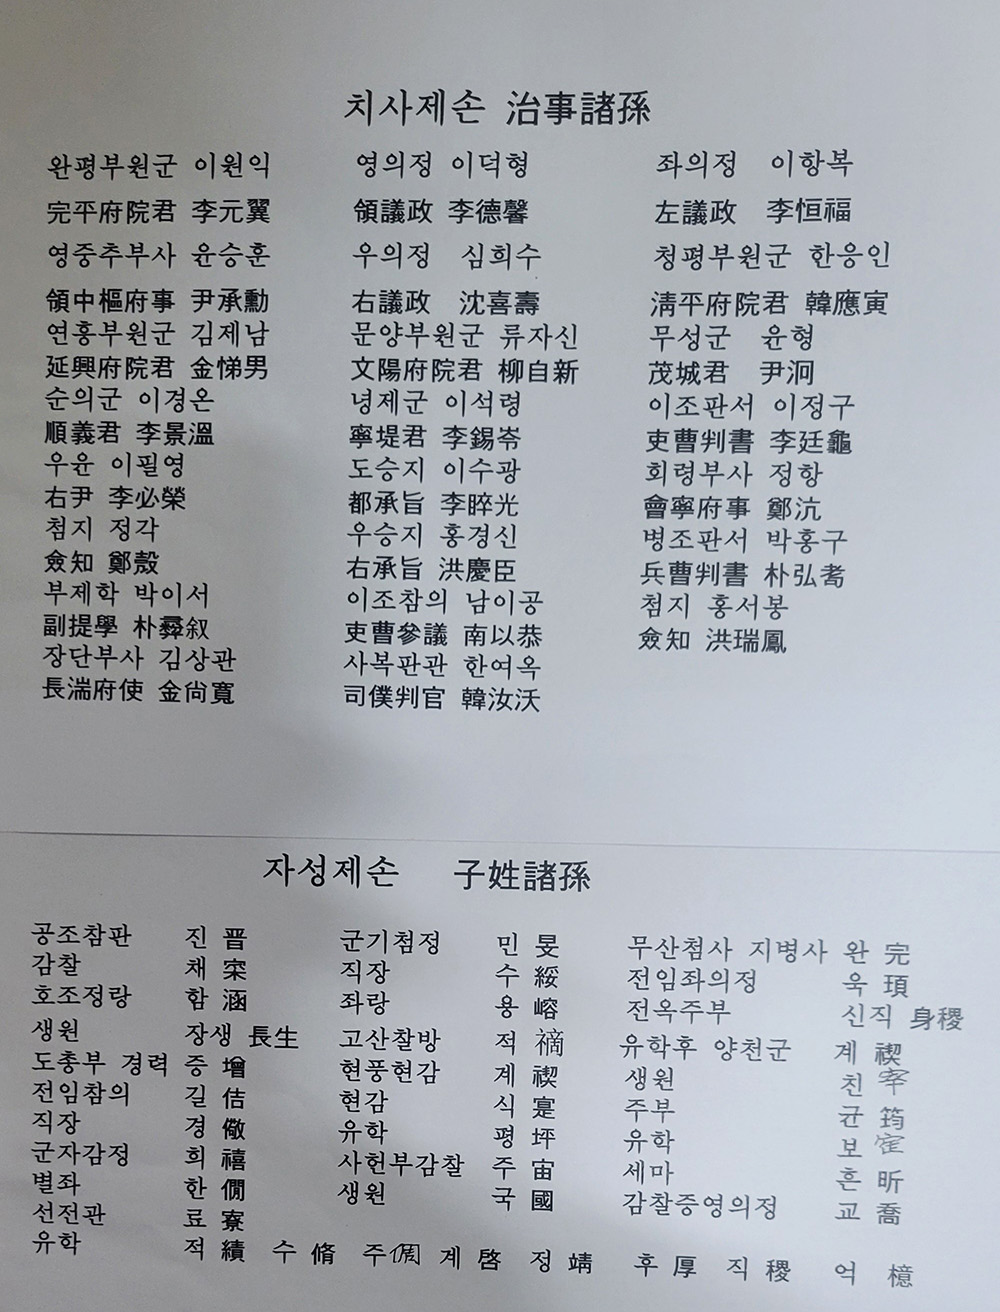 치사제손 治事諸孫
완평부원군 이원익 영의정 이덕형 좌의정 이항복
完平府院君 李元翼 領議政 李德馨 左議政 李恒福
영중추부사 윤승훈 우의정 심희수 청평부원군 한응인
領中樞府事 尹承勳 右議政 沈喜壽 淸平府院君 韓應寅
연흥부원군 김제남 문양부원군 류자신 무성군 윤형
延興府院君 金悌男 文陽府院君 柳自新 茂城君 尹泂
순의군 이경온 녕제군 이석령 이조판서 이정구
順義君 李景溫 寧堤君 李錫岺 吏曹判書 李廷龜
우윤 이필영 도승지 이수광 회령부사 정항
右尹 李必榮 都承旨 李睟光 會寧府事 鄭沆
첨지 정각 우승지 홍경신 병조판서 박홍구
僉知 鄭慤 右承旨 洪慶臣 兵曹判書 朴弘耈
부제학 박이서 이조참의 남이공 첨지 홍서봉
副提學 朴彛叙 吏曹參議 南以恭 僉知 洪瑞鳳
장단부사 김상관 사복판관 한여옥
長湍府使 金尙寬 司僕判官 韓汝沃
자성제손 子姓諸孫
공조참판 진 晋 군기첨정 민 旻 무산첨사 지병사 완 完
감찰 채 宷 직장 수 綏 전임좌의정 욱 頊
호조정랑 함 涵 좌랑 용 嵱 전옥주부 신직 身稷
생원 장생 長生 고산찰방 적 樀 유학후 양천군 계 禊
도총부 경력 증 增 현풍현감 계 禊 생원 친
전임참의 길 佶 현감 식 寔 주부 균 筠
직장 경 儆 유학 평 坪 유학 보
군자감정 희 禧 사헌부감찰 주 宙 세마 흔 昕
별좌 한 僩 생원 국 國 감찰증영의정 교 喬
선전관 료 寮
유학 적 績 수 脩 주 계 啓 정 靖 후 厚 직 稷 억 檍